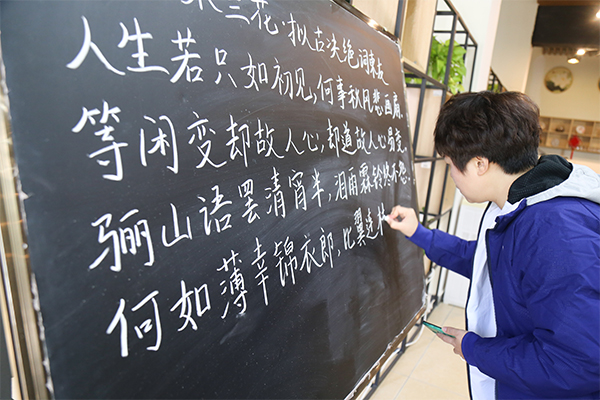 木兰花·拟古决绝词柬友
人生若只如初见,何事秋风悲画扇。
等闲变却故人心,却道故人心易变。
骊山语罢清宵半,泪雨霖铃终不怨。
何如薄幸锦衣郎,比翼连